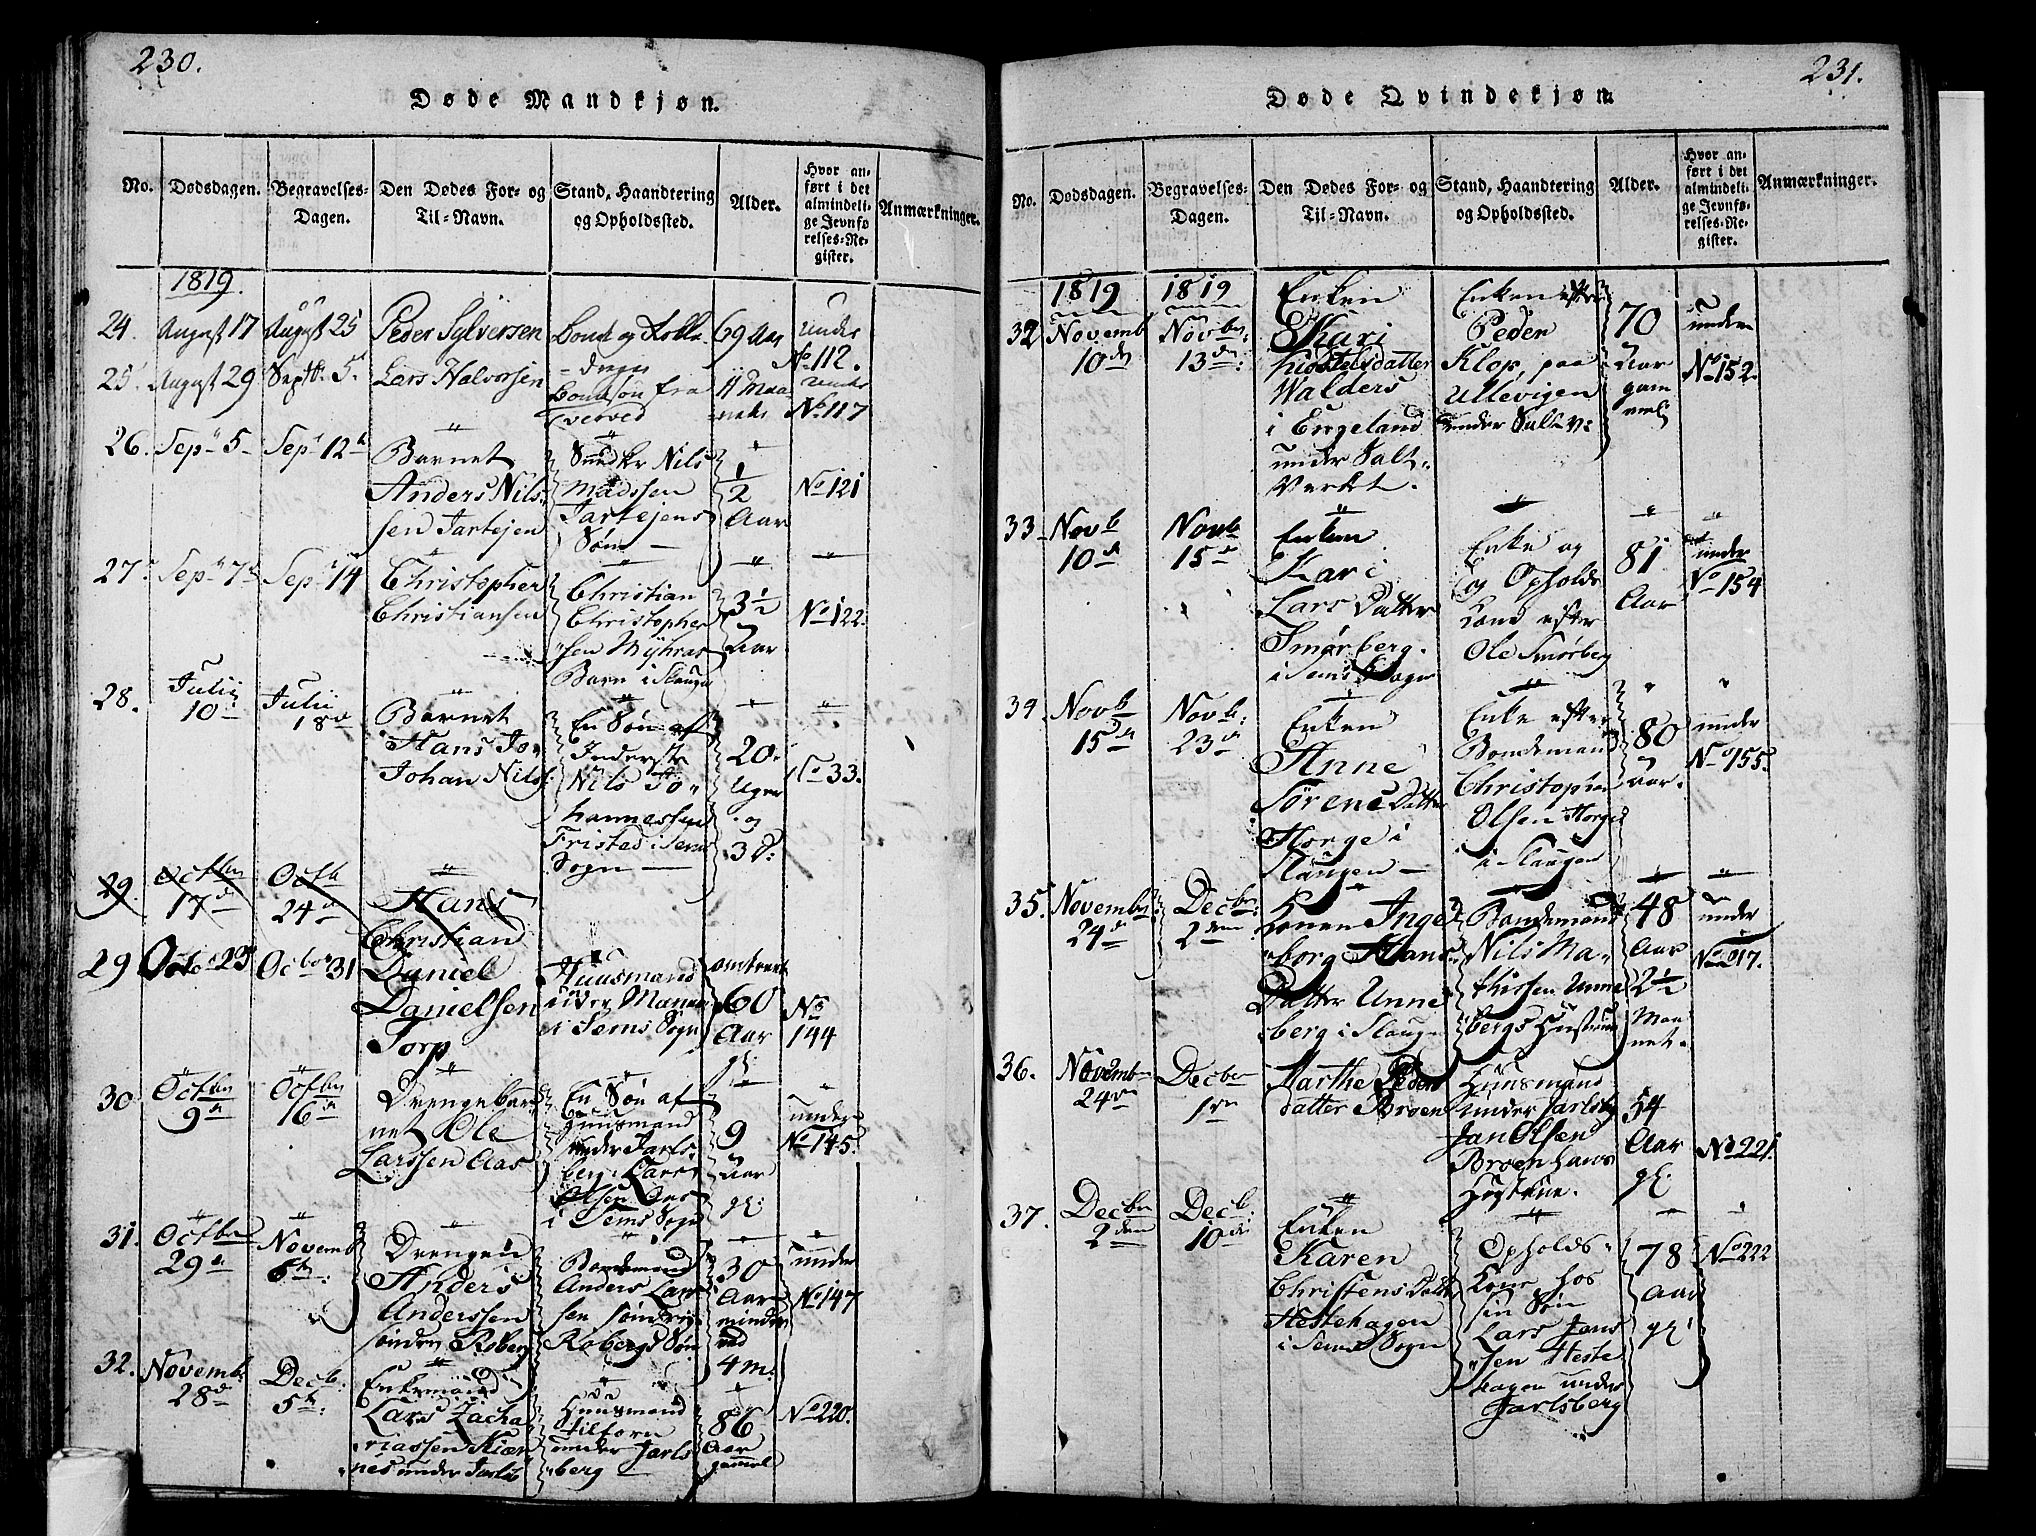 230.
Døde Mandkjøn.
No.
Dødsdagen.
Begravelses-
Dagen.
Den Dødes For- og
Til-Navn.
Stand, Haandtering
og Opholdssted.
Alder.
Hvor an-
ført i det
almindeli-
ge Jevnfø-
relses-Re-
gister.
Anmærkninger.
1819.
24. August 17 August 25 Peder Sylversen
69 Aar
under
No 112.
25. August 29 Septb. 5. Lars Halvorsen
11 Maa-
neder
under
No 117
26. Sep 5 Sep 12
Barnet
Anders Nils-
sen Jartejen
Snedker Nils
Madssen
Jartejens
Søn
1/2
Aar
No 121
27. Sep 7 Sep 14
Christopher
Christiansen
Christian
Christopher
sen Myhras
Barn i Slaugen
3 1/2
Aar
No 122.
28.
Julii
10
Julii
18
Barnet
Hans Jo-
Johan Nils.
En Søn af
Inderste
Nils Jo-
hannessen
Fristad i Sems
Sogn
20
Uger
og
3 D:
No 33.
29.
Octbr
17
Octb
24
Hans
Christian
29 Octo 23 Octbr 31
Daniel
Danielsen
Torp
Huusmand
i Sems Sogn
omtrent
60
Aar
gl.
No
144
30.
Octbr
9
Octbr
16
Drengebar-
net Ole
Larssen Aas
En Søn af
Huusmand
under Jarls-
berg Lars
Olsen Aas
i Sems Sogn
9
Aar
gl.
under
No 145.
31.
Octbr
29
Novemb
6
Drengen
Anders
Anderssen
søndre Roberg
Bondemand
Anders Lar-
sen søndre
Robergs Søn
30
Aar
mindre
end
4 m.
under
No 147
32.
Novemb
28
Decb.
5
Enkemand
Lars Zacha-
riassen Kiær-
nes under Jarlsb
Huusmand
tilforn
under Jarls
berg
86
Aar
gammel
No 220.
231.
Døde Qvindekjøn.
No.
Dødsdagen.
Begravelses-
Dagen.
Den Dødes For- og
Til-Navn.
Stand, Haandtering
og Opholdssted.
Alder.
Hvor an-
ført i det
almindeli-
ge Jevnfø-
relses-Re-
gister.
Anmærkninger.
1819 1819
32
Novemb
10
Novbr.
13
Enken
Kari
datter
Walders
i Engeland
under Salt-
Verket.
Enke efter
Peder
Klop, paa
Ullevigen
under Salt V:
70
Aar
gam
mel
under
No 152.
33.
Novb
10
Novb
15
Enken
Kari
Lars Datter
Smørberg
i Sems Sogn
Enke og
og Opholds
Kone efter
Ole Smørberg
81
Aar
under
No 154
34
Novb
15
Novb.
23
Enken
Anne
Sørens Datter
Horge i
Slaugen
Enke efter
Bondemand
Christopher
Olsen Horge
i Slaugen
80
Aar.
under
No 155.
35.
Novembr
24
Decbr.
2
Konen Inge-
borg Hans-
Datter Unne
berg i Slaugen
Bondemand
Nils Ma-
thissen Unne
bergs Hustrue
48
Aar
2 1/2
Maa
net.
under
No 217.
36.
Novemb
24
Decbr
1
Marthe Peders
datter Broen
Huusmand
under Jarlsberg
Jan Olsen
Broen hans
Hustrue.
54
Aar
gl.
No 221.
37.
Decbr
2
Decb.
10
Enken
Karen
Christens Datter
Hestehagen
i Sems Sogn
Opholds-
Kone hos
sin Søn
Lars Jens
sen Heste
hagen under
Jarlsberg
78
Aar
gl
No 222